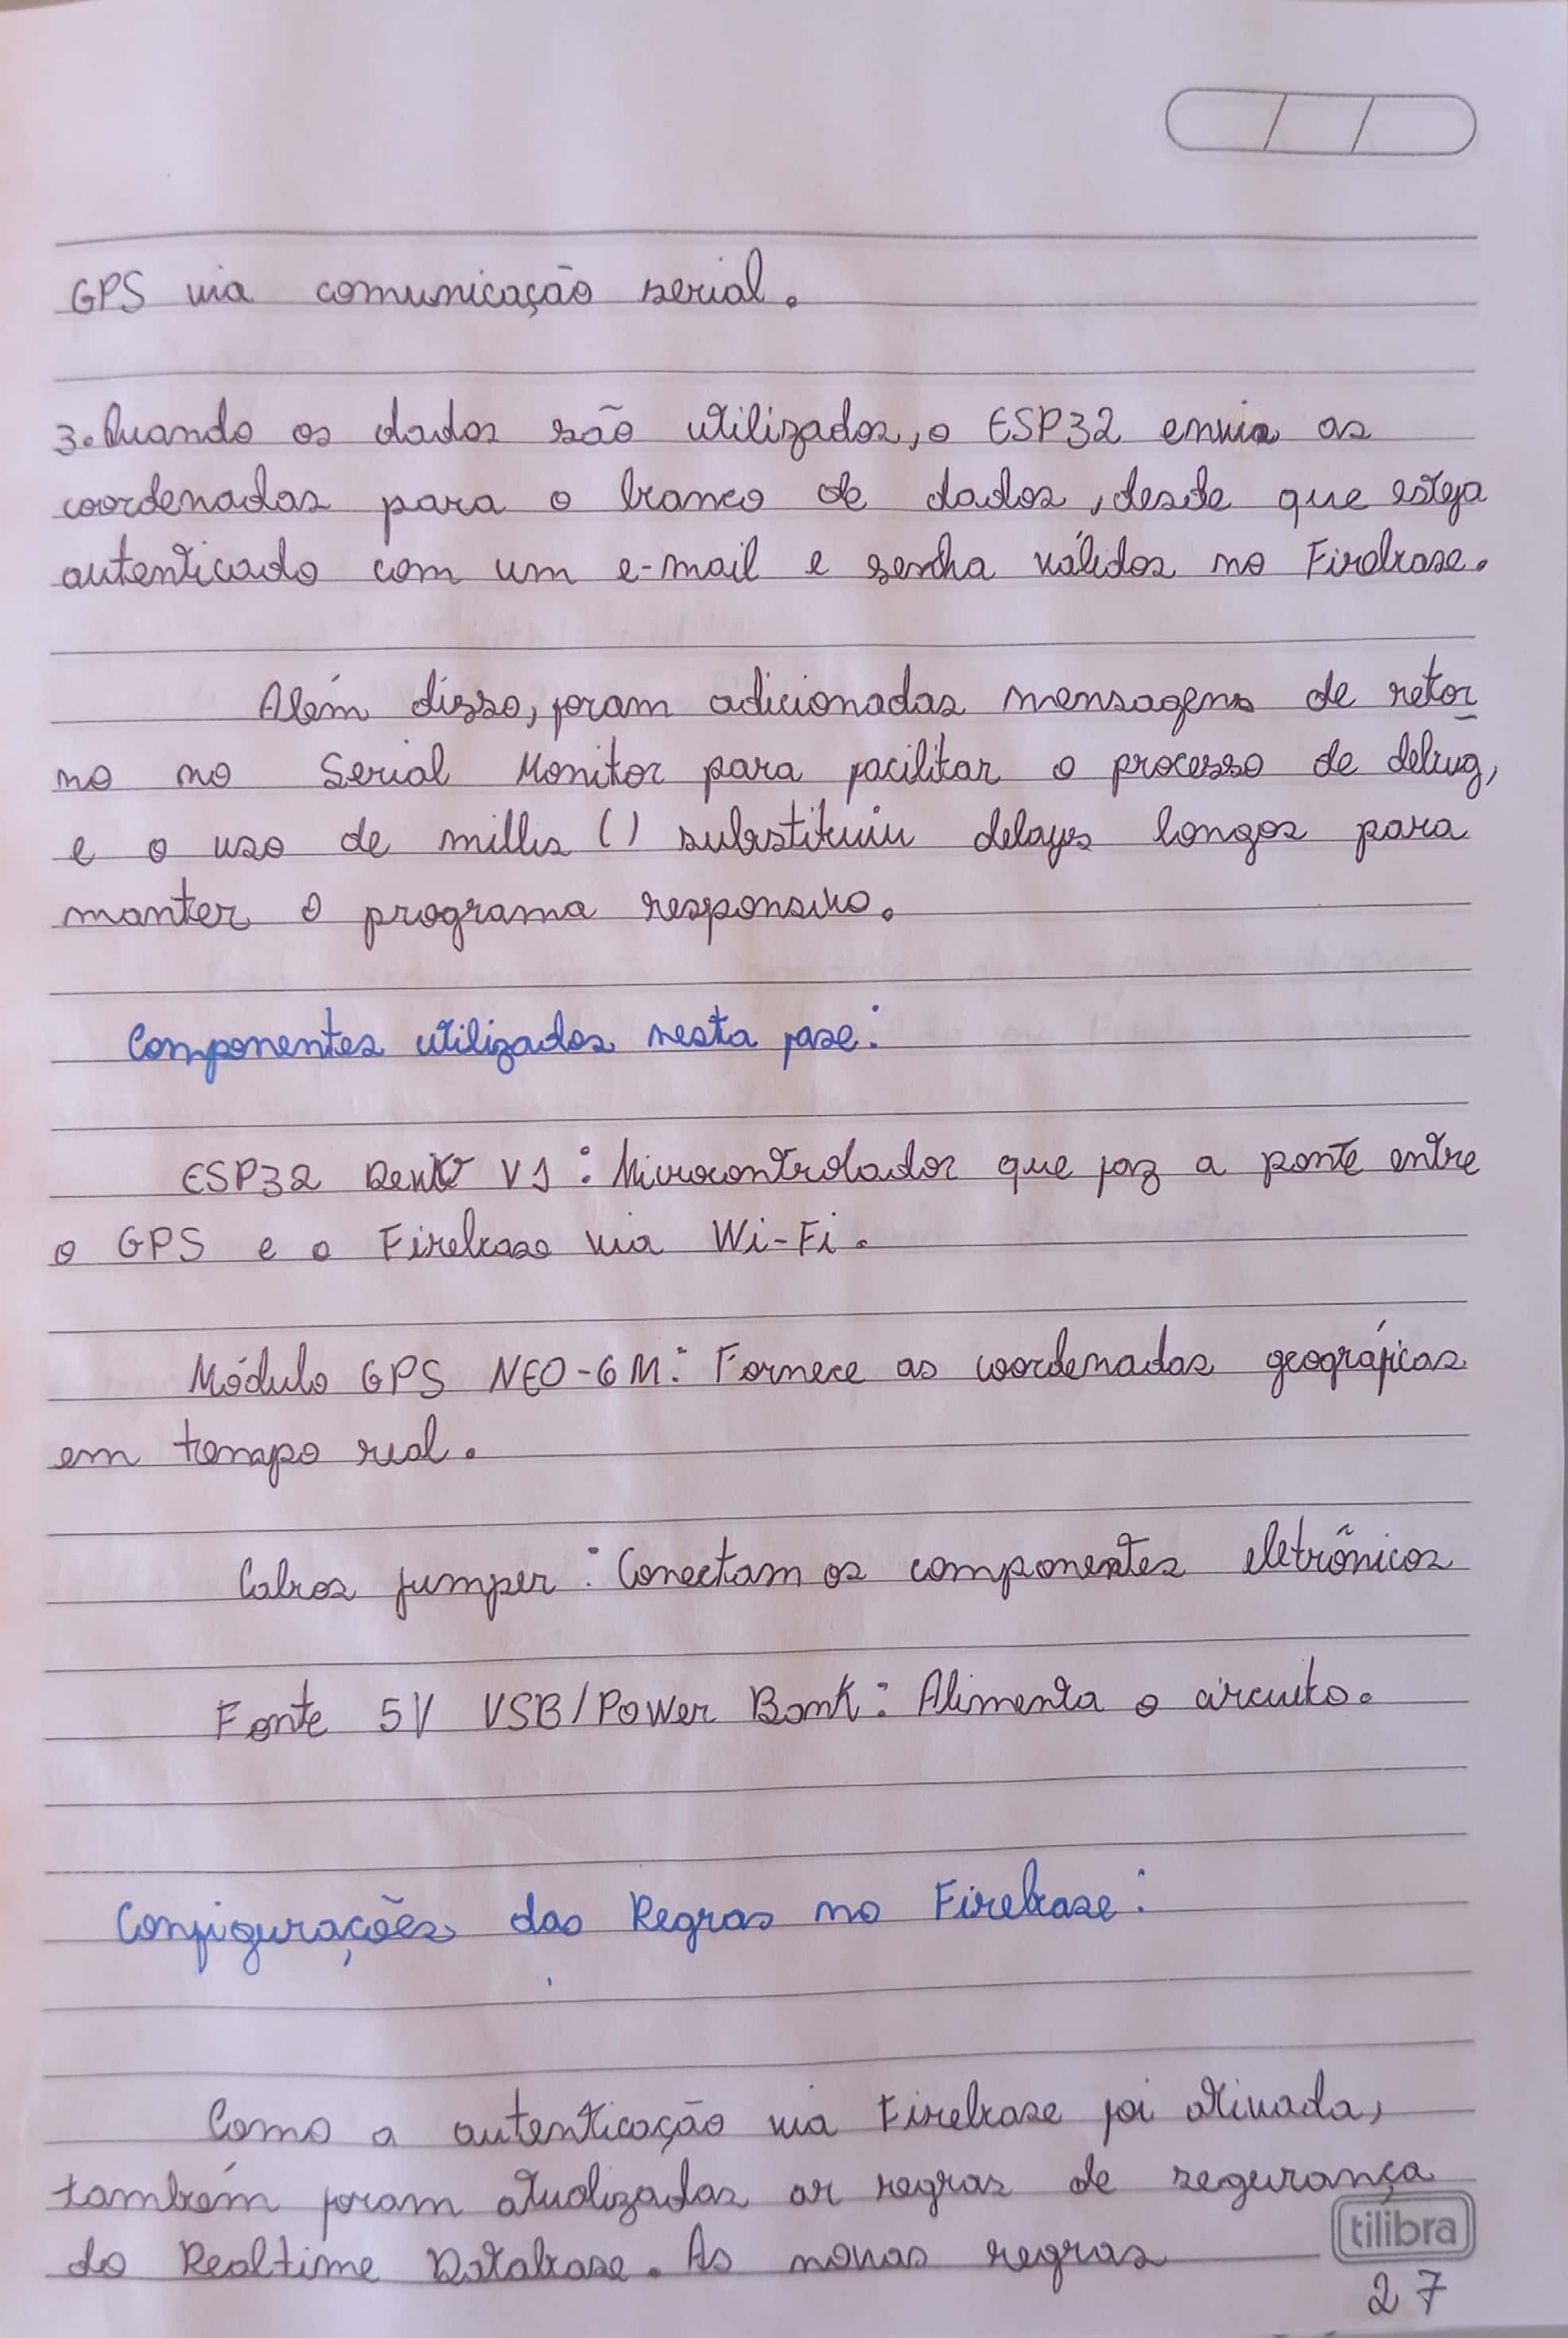 GPS via comunicação serial.
3. Quando os dados são utilizados, o ESP32 envia as
coordenadas para o banco de dados, desde que esteja
autenticado com um e-mail e senha válidos no Firebase.
Além disso, foram adicionadas mensagens de retor
no no Serial Monitor para facilitar o processo de debug,
e o uso de millis () substituiu delays longos para
manter o programa responsivo.
Componentes utilizados nesta fase:
ESP32 V1 : Microcontrolador que faz a ponte entre
o GPS e o Firebase via Wi-Fi.
Módulo GPS NEO-6M: Fornece as coordenadas geográficas
em tempo real.
Cabos jumper : Conectam os componentes eletrônicos
Fonte 5V USB/Power Bank: Alimenta o circuito.
Configurações das Regras no Firebase:
Como a autenticação via Firebase foi ativada,
também foram atualizadas as regras de segurança
do Realtime Database. As novas regras
tilibra
27